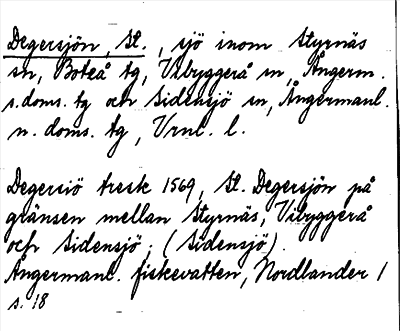 Degersjön, St., sjö inom Styrnäs
sn, Boteå tg, Vibyggerå sn, Ångerm.
s. doms. tg och Sidensjö sn, Ångermanl.
n. doms. tg, Vrnl. l.
Degersiö tresk 1569, St. Degersjön på
gränsen mellan Styrnäs, Vibyggerå
och Sidensjö; (Sidensjö).
Ångermanl. fiskevatten, Nordlander 1
s. 18